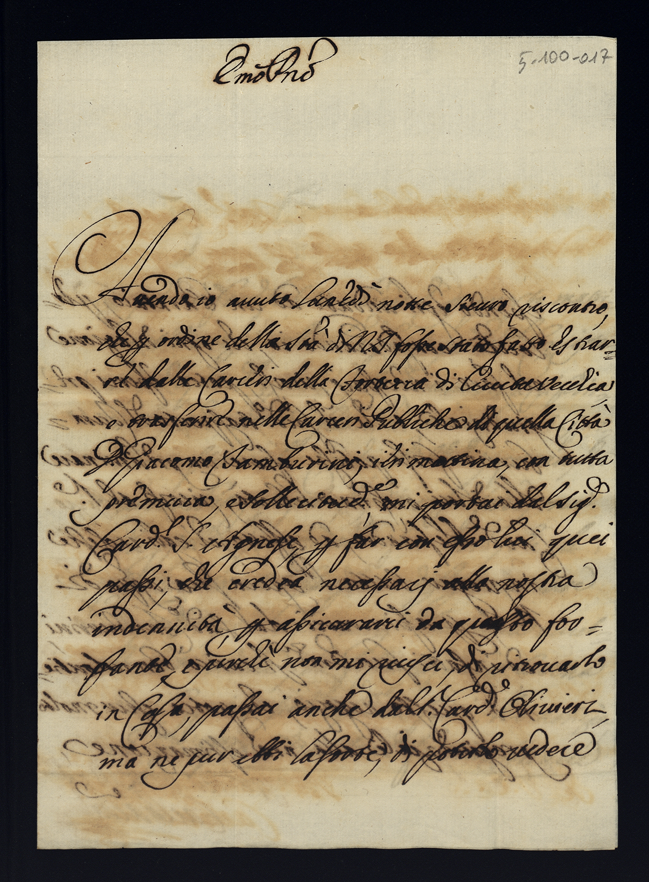 5-100-017
Emõ Pnõ
Avendo io avuto Lunedì notte sicuro riscontro,
che p ordine della Stà di N.S. fosse stato fatto estrar-
re dalle Carceri della Forteza di Civita Vecchia
e trasferire nelle Carceri Pubbliche di quella Città
Giacomo Tamburini, ieri mattina, con tutta
premura, e sollecitudẽ mi portai dal sigr
Cardl S. Agnese, p far con esso lui quei
passi, che credea necessarj alla nostra
indennità, p assicurarci da questo fur-
fante, e perchè non mi riuscì di ritrovarlo
in Casa, passai anche dal Sr Cardl Olivieri,
ma ne pur ebbi la sorte, di poterlo vedere